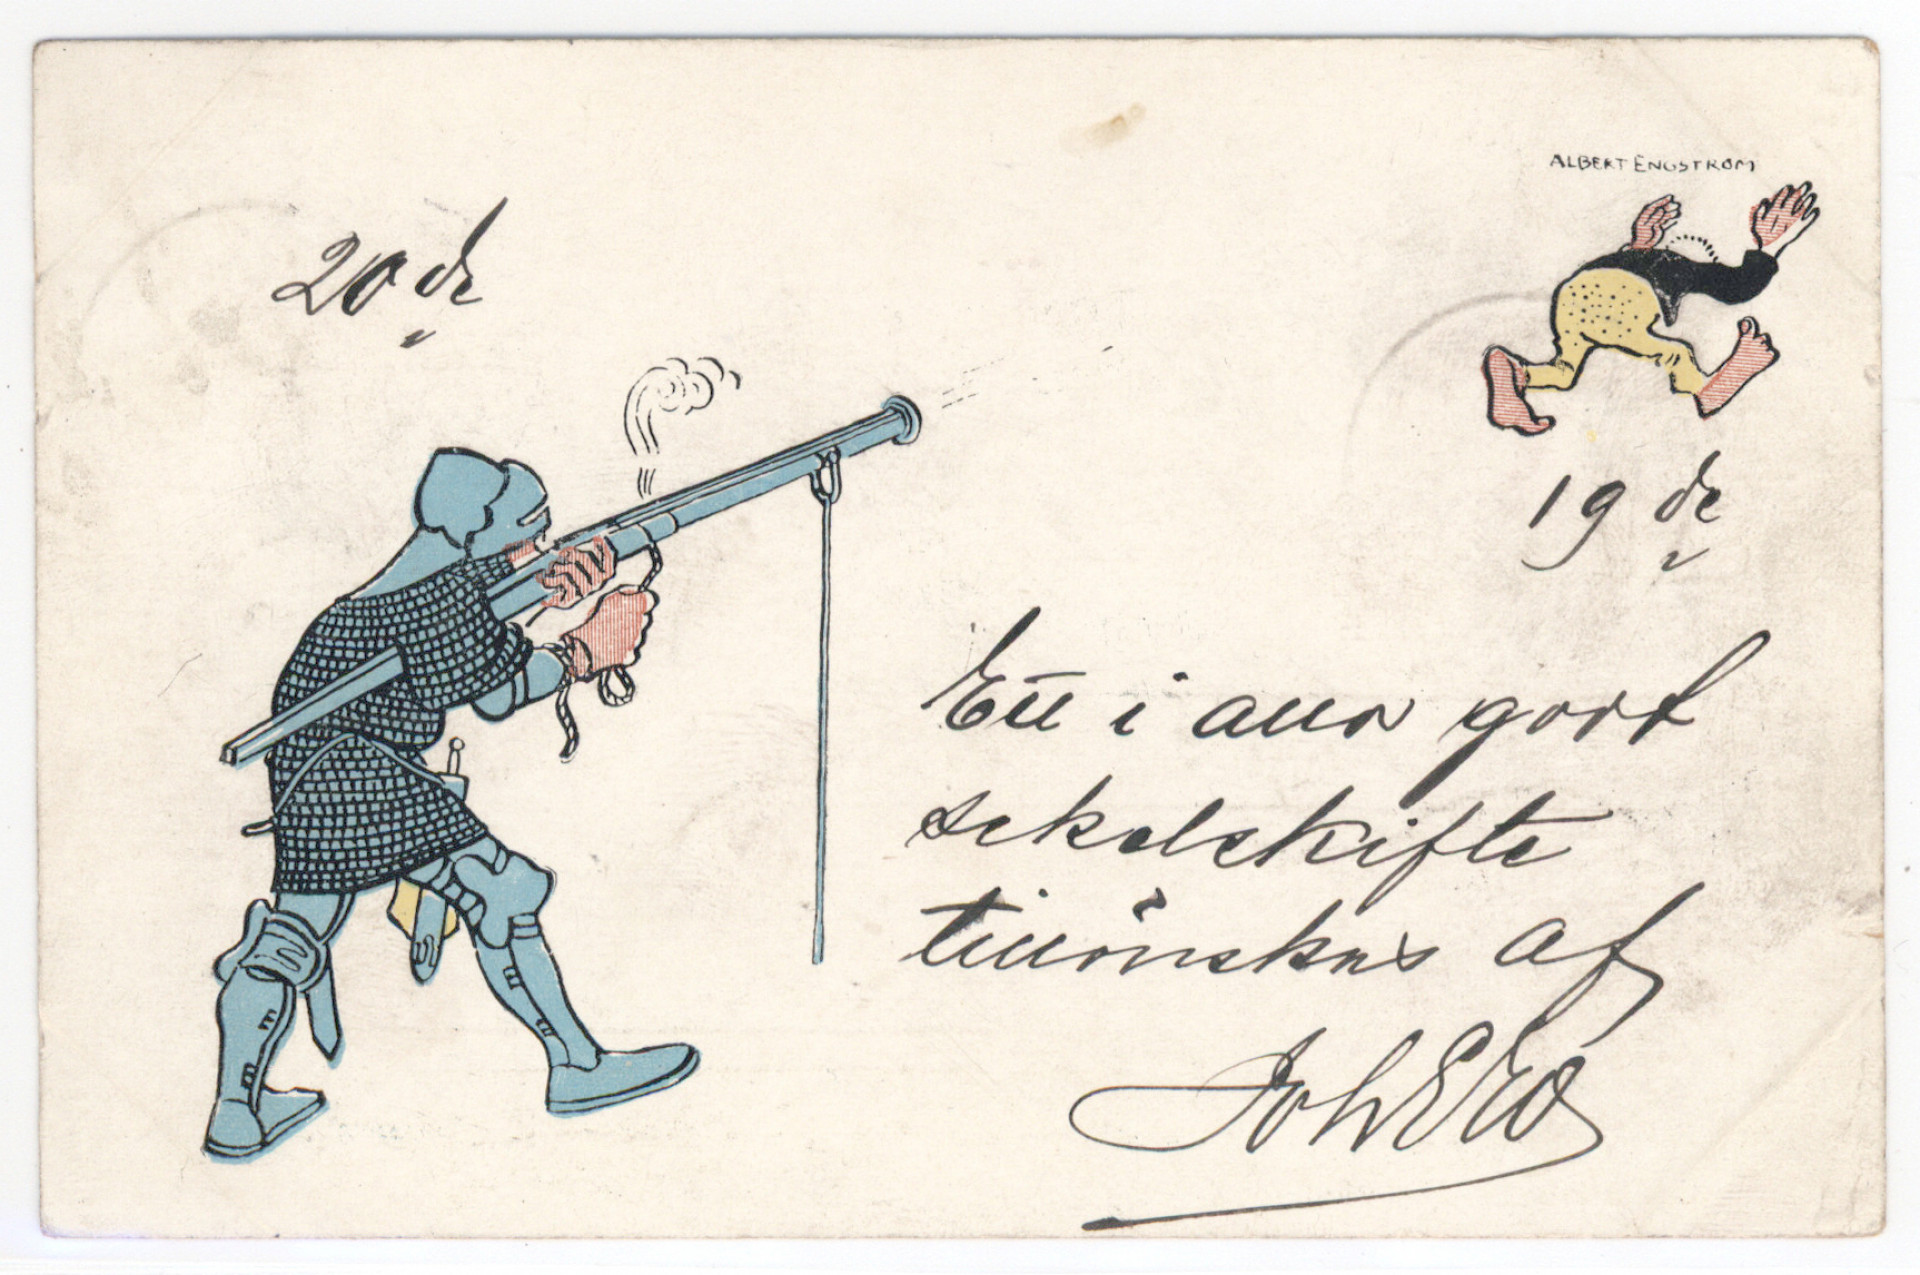 ALBERT ENGSTRÖM
20de
19de
Ett i allo godt
sekelskifte
tillönskas af
Joh